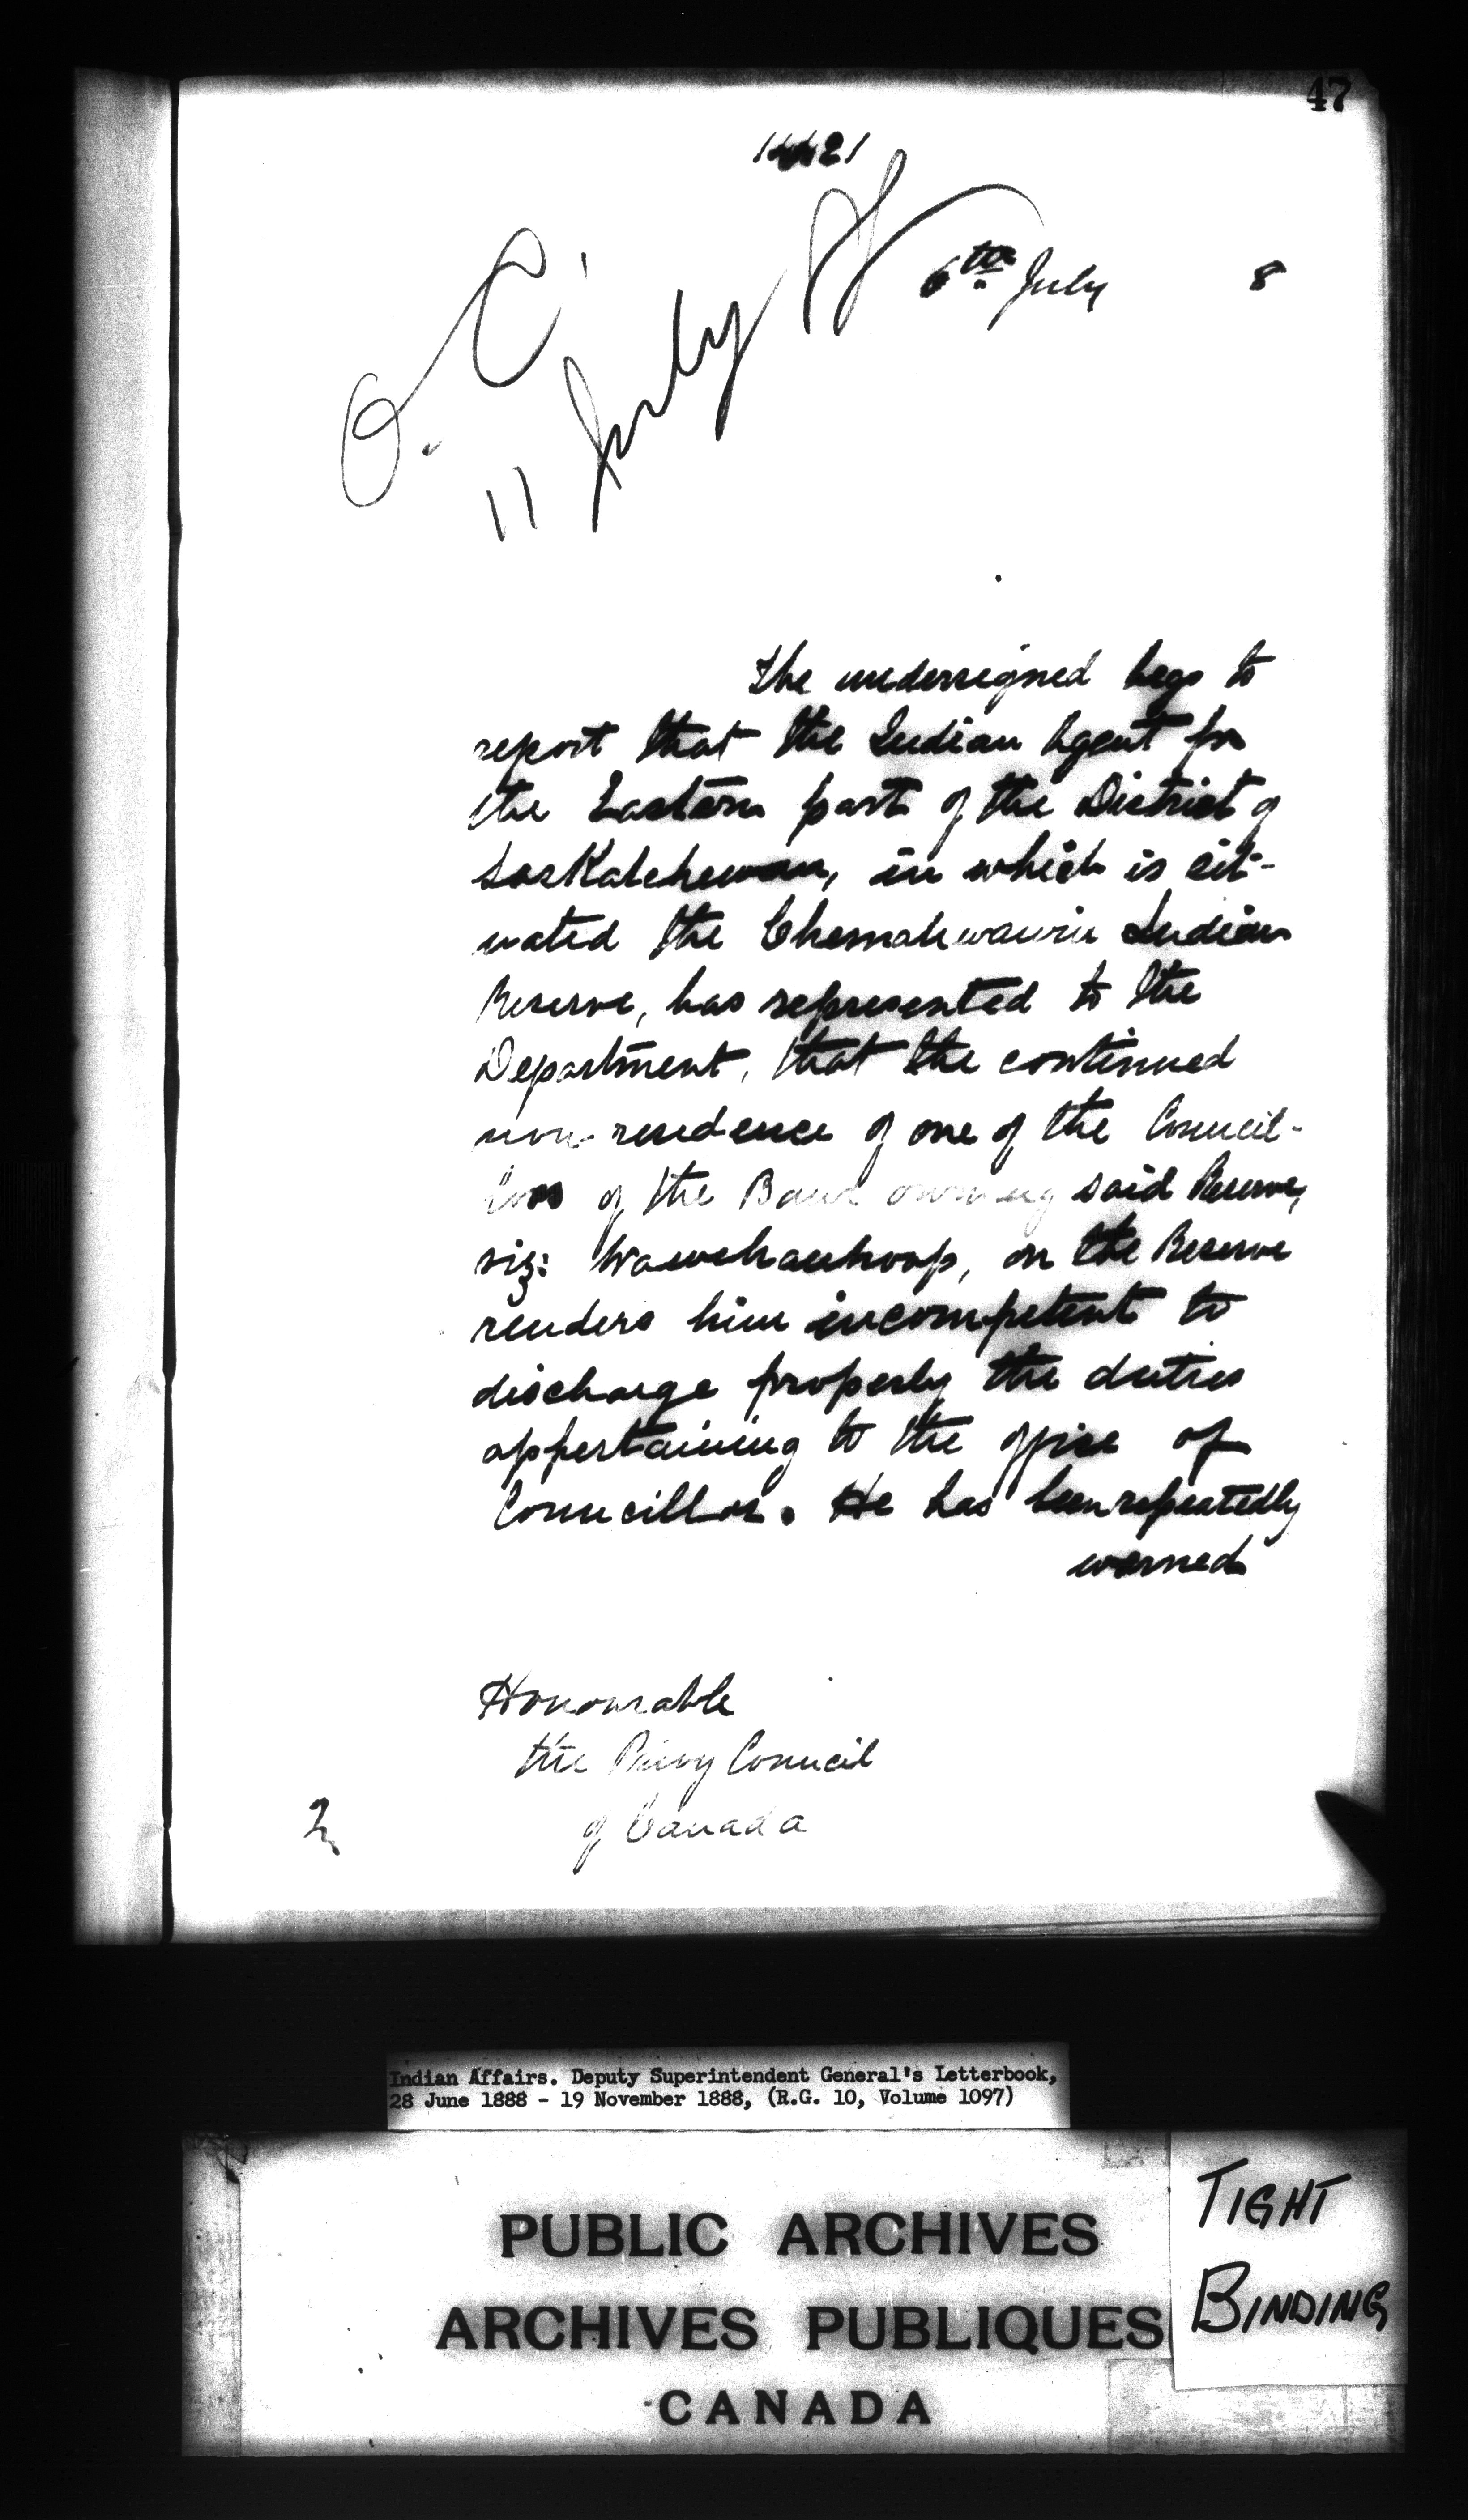 47
6th July 8
O. C.
11 July
The undersigned begs to
report that the Indian Agent for
the Eastern part of the District of
Saskatchewan, in which is sit-
uated the Chemahwawin Indian
Reserve, has represented to the
Department, that the continued
non-residence of one of the Council-
lors of the Band owning said Reserve,
viz: on the Reserve
renders him incompetent to
discharge properly the duties
appertaining to the office of
Councillor. He has been repeatedly
warned
Honourable
the Privy Council
of Canada
Indian Affairs. Deputy Superintendent General's Letterbook,
28 June 1888 - 19 November 1888, (R.G. 10, Volume 1097)
PUBLIC ARCHIVES
ARCHIVES PUBLIQUES
CANADA
TIGHT
BINDING